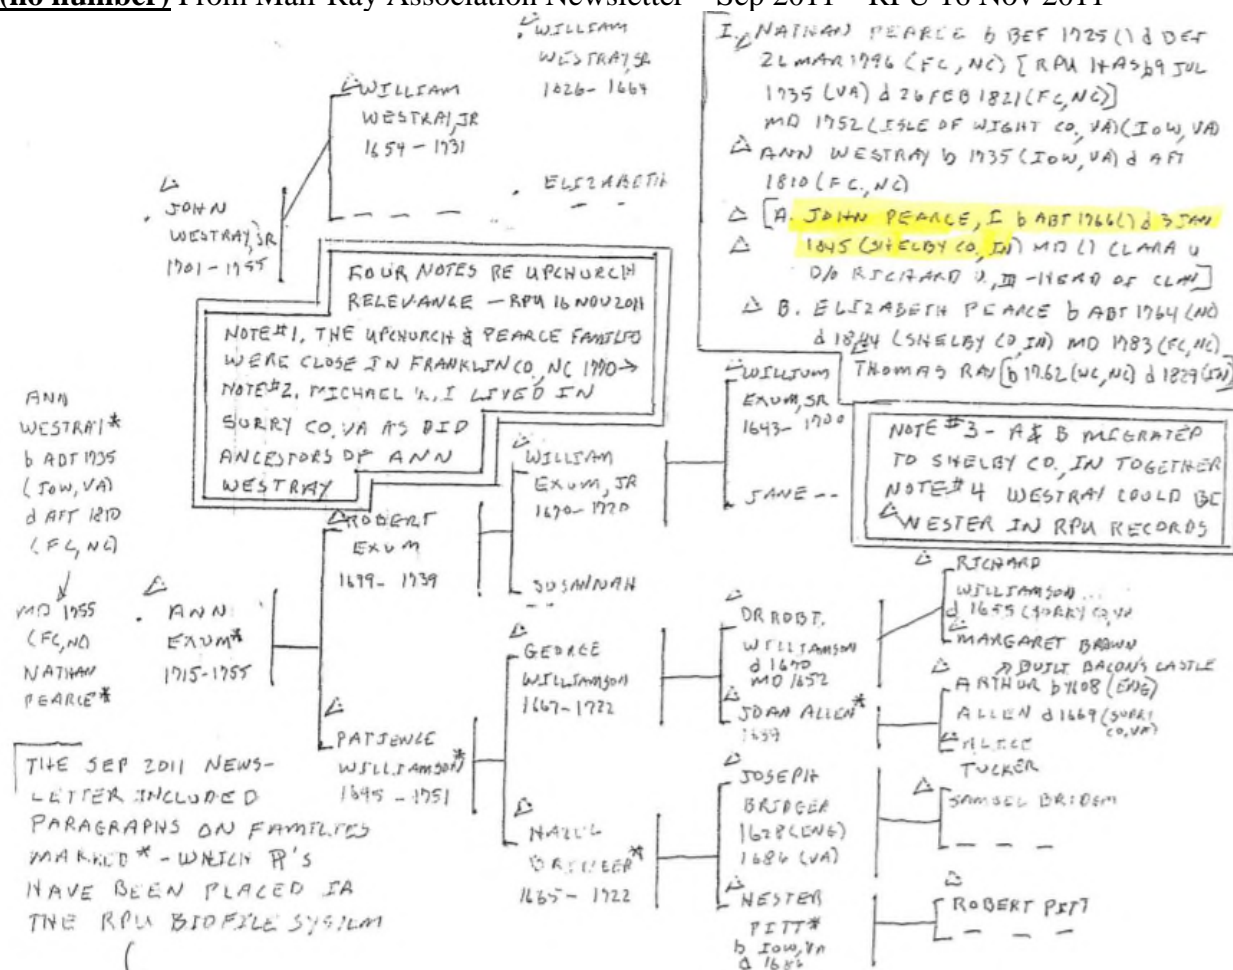 (no number) From Man-Ray Association Newsletter – Sep 2011 – RPU 16 Nov 2011
WILLIAM
WESTRAY, SR
1626- 1664
WILLIAM
WESTRAY, JR
1659 - 1731
ELIZABETH
JOHN
WESTRAY, SR
1701 - 1755
I. NATHAN PEARCE b BEF 1725 () d BEF
26 MAR 1796 (FC, NC) [RPU HAS b 9 JUL
1735 (VA) d 26 FEB 1821 (FC, NC)]
MD 1752 (ISLE OF WIGHT CO., VA) (IOW, VA
ANN WESTRAY b 1735 (IOW, VA) d AFT
1810 (FC., NC)
[A. JOHN PEARCE, I b ABT 1766 () d 3 JAN
1845 (SHELBY CO, IN) MD () CLARA U
D/O RICHARD U., III - HEAD OF CLAN]
B. ELIZABETH PEARCE b ABT 1764 (NC)
d 1844 (SHELBY CO, IN) MD 1783 (FC, NC)
THOMAS RAY [b 1762 (WC, NC) d 1829 (IN)]
FOUR NOTES RE UPCHURCH
RELEVANCE - RPU 16 NOV 2011
NOTE #1, THE UPCHURCH & PEARCE FAMILIES
WERE CLOSE IN FRANKLIN CO., NC 1770 →
NOTE #2, MICHAEL U., I LIVED IN
SURRY CO, VA AS DID
ANCESTORS OF ANN
WESTRAY
NOTE #3 - A & B MIGRATED
TO SHELBY CO., IN TOGETHER
NOTE #4 WESTRAY COULD BE
WESTER IN RPU RECORDS
ANN
WESTRAY*
b ABT 1735
(IOW, VA)
d AFT 1810
(FC, NC)
MD 1755
(FC, NC)
NATHAN
PEARCE*
ANN
EXUM*
1715-1755
ROBERT
EXUM
1699 - 1739
PATIENCE
WILLIAMSON*
1695 - 1751
WILLIAM
EXUM, JR
1670 - 1720
SUSANNAH
--
WILLIUM
EXUM, SR
1643- 1700
JANE --
GEORGE
WILLIAMSON
1667-1722
HAZEL
BRIDGER*
1665 - 1722
DR ROBT.
WILLIAMSON
d 1670
MD 1652
JOAN ALLEN*
1659
JOSEPH
BRIDGER
1628 (ENG)
1686 (VA)
HESTER
PITT*
b IOW, VA
d 1686
RICHARD
WILLIAMSON
d 1655 (SURRY CO, VA
MARGARET BROWN
BUILT BACON'S CASTLE
ARTHUR b 1608 (ENG)
ALLEN d 1669 (SURRY
CO, VA)
ALICE
TUCKER
SAMUEL BRIDGER
ROBERT PITT
THE SEP 2011 NEWS-
LETTER INCLUDED
PARAGRAPHS ON FAMILIES
MARKED* - WHICH P'S
HAVE BEEN PLACED IN
THE RPU BIOFILE SYSTEM